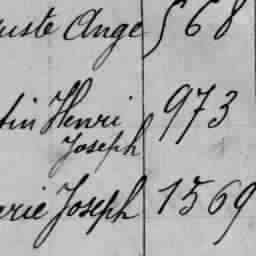 uste Ange 568
tin Henri 973
Joseph
arie Joseph 1569